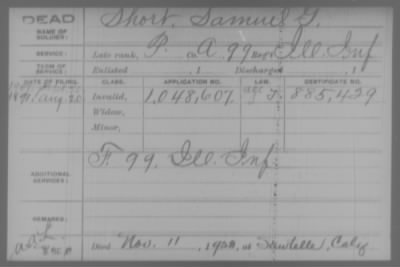 DEAD
NAME OF SOLDIER: Short, Samuel G.
SERVICE: Late rank, P. Co. A, 99 Reg't Ill. Inf
TERM OF SERVICE: Enlisted , 1 Discharged , 1
DATE OF FILING. CLASS. APPLICATION NO. LAW. CERTIFICATE NO.
1891/Aug. 20 Invalid, 1,048,607 J. 885,429
Widow,
Minor,
ADDITIONAL SERVICES: F. 99, Ill. Inf.
REMARKS:
Died Nov. 11, at Sawtelle, Calif